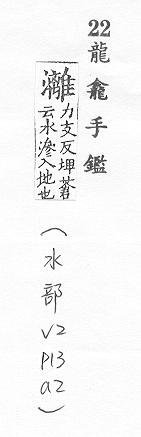 22龍龕手鑑
灕力支反埤蒼
云水滲入地也
(水部V2P13a2)